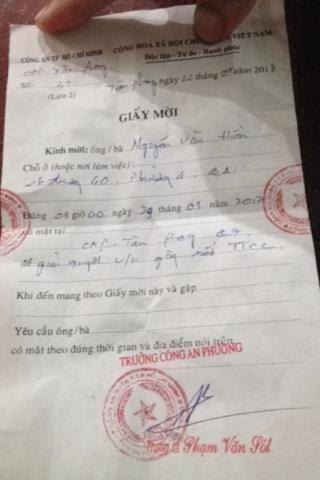 CÔNG AN TP HỒ CHÍ MINH CỘNG HÒA XÃ HỘI CHỦ NGHĨA VIỆT NAM
Độc lập - Tự do - Hạnh phúc
Số:
(Liên 2)
Tân Phong ngày 22 tháng 03 năm 2017
GIẤY MỜI
Kính mời: ông / bà Nguyễn Văn
Chỗ ở (hoặc nơi làm việc):
đường 40, Phường 4,
Đúng 08 giờ 00, ngày 29 tháng 03 năm 2017
có mặt tại CAP Tân Phong
để giải quyết v/v gây mất TTCC.
Khi đến mang theo Giấy mời này và gặp
Yêu cầu ông/bà
có mặt theo đúng thời gian và địa điểm nói trên.
TRƯỞNG CÔNG AN PHƯỜNG
Trung tá Phạm Văn Sốt